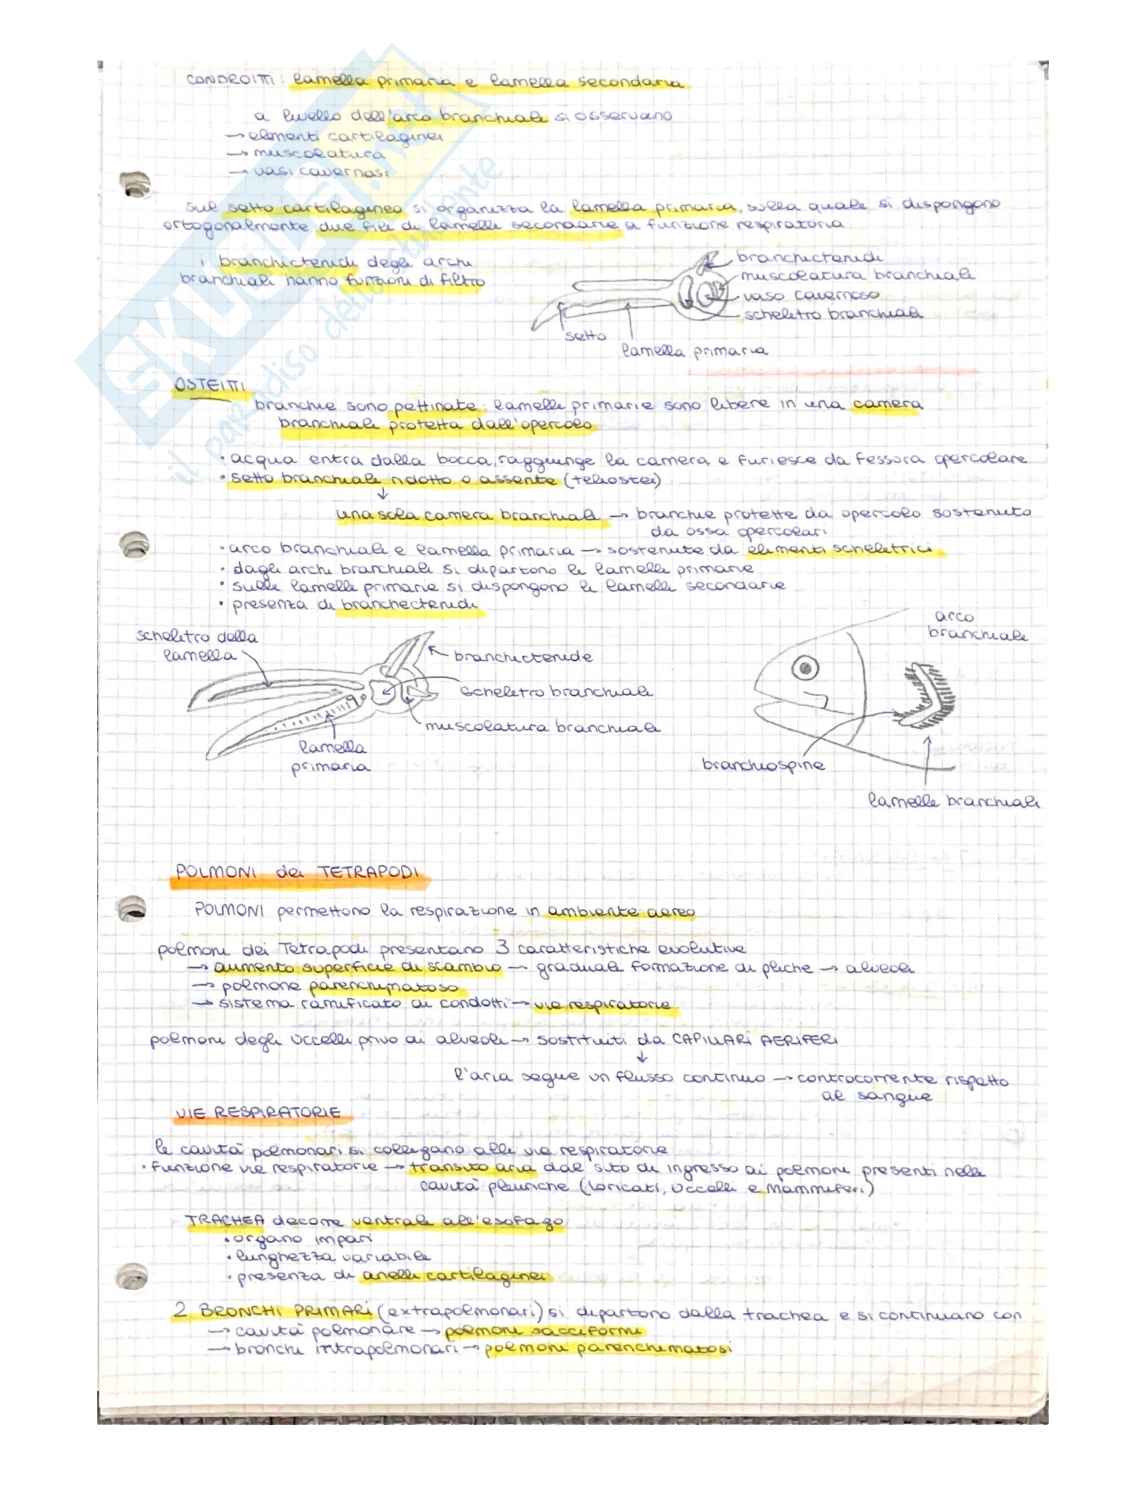 CONDROITTI: lamella primaria e lamella secondaria
a livello dell'arco branchiale si osservano
→ elementi cartilaginei
→ muscolatura
→ vasi cavernosi
sul setto cartilagineo si organizza la lamella primaria, sulla quale si dispongono
ortogonalmente due file di lamelle secondarie a funzione respiratoria
i branchictenidi degli archi
branchiali hanno funzioni di filtro
branchictenidi
muscolatura branchiale
vaso cavernoso
scheletro branchiale
setto
lamella primaria
OSTEITTI
branchie sono pettinate: lamelle primarie sono libere in una camera
branchiale protetta dall'opercolo
• acqua entra dalla bocca, raggiunge la camera e furiesce da fessura opercolare
• setto branchiale ridotto o assente (teleostei)
↓
una sola camera branchiale → branchie protette da opercolo sostenuto
da ossa opercolari
• arco branchiale e lamella primaria → sostenute da elementi scheletrici
• dagli archi branchiali si dipartono le lamelle primarie
• sulle lamelle primarie si dispongono le lamelle secondarie
• presenza di branchectenidi
scheletro della
lamella
branchictenide
scheletro branchiale
muscolatura branchiale
lamella
primaria
arco
branchiale
branchiospine
lamelle branchiali
POLMONI dei TETRAPODI
POLMONI permettono la respirazione in ambiente aereo
polmoni dei Tetrapodi presentano 3 caratteristiche evolutive
→ aumento superficie di scambio → graduale formazione di pliche → alveoli
→ polmone parenchimatoso
→ sistema ramificato di condotti → vie respiratorie
polmoni degli Uccelli privo di alveoli → sostituiti da CAPILLARI AERIFERI
↓
l'aria segue un flusso continuo → controcorrente rispetto
al sangue
VIE RESPIRATORIE
le cavità polmonari si collegano alle vie respiratorie
• funzione vie respiratorie → transito aria dal sito di ingresso ai polmoni presenti nelle
cavità pleuriche (Loricati, Uccelli e Mammiferi)
TRACHEA decorre ventrale all'esofago
• organo impari
• lunghezza variabile
• presenza di anelli cartilaginei
2 BRONCHI PRIMARI (extrapolmonari) si dipartono dalla trachea e si continuano con
→ cavità polmonare → polmoni sacciformi
→ bronchi intrapolmonari → polmoni parenchimatosi
SKUOLA.net
il paradiso dello studente